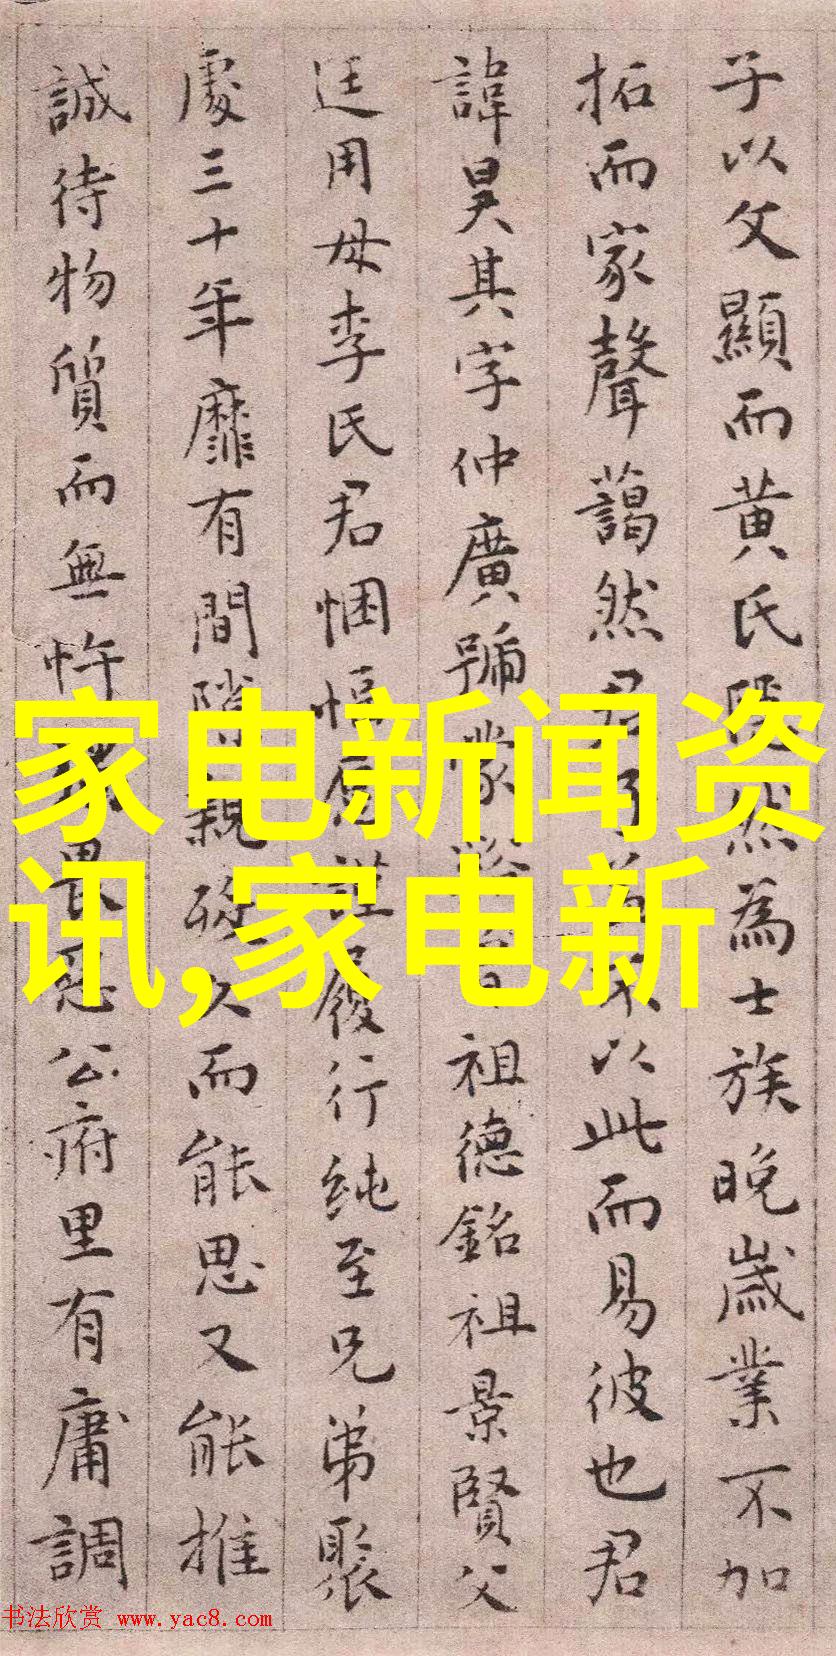 子以父顯而黃氏燁然為士族晚歲業不加
拓而家聲藹然君子不以此而易彼也君
諱昊其字仲廣號蒙祖德銘祖景賢父
廷用母李氏君悃愊履行純至兄弟聚
處三十年靡有間隙親疏久而能思又能推
誠待物質而無忤畏公府里有庸調
家电新闻资
讯,家电新
书法欣赏 www.yac8.com